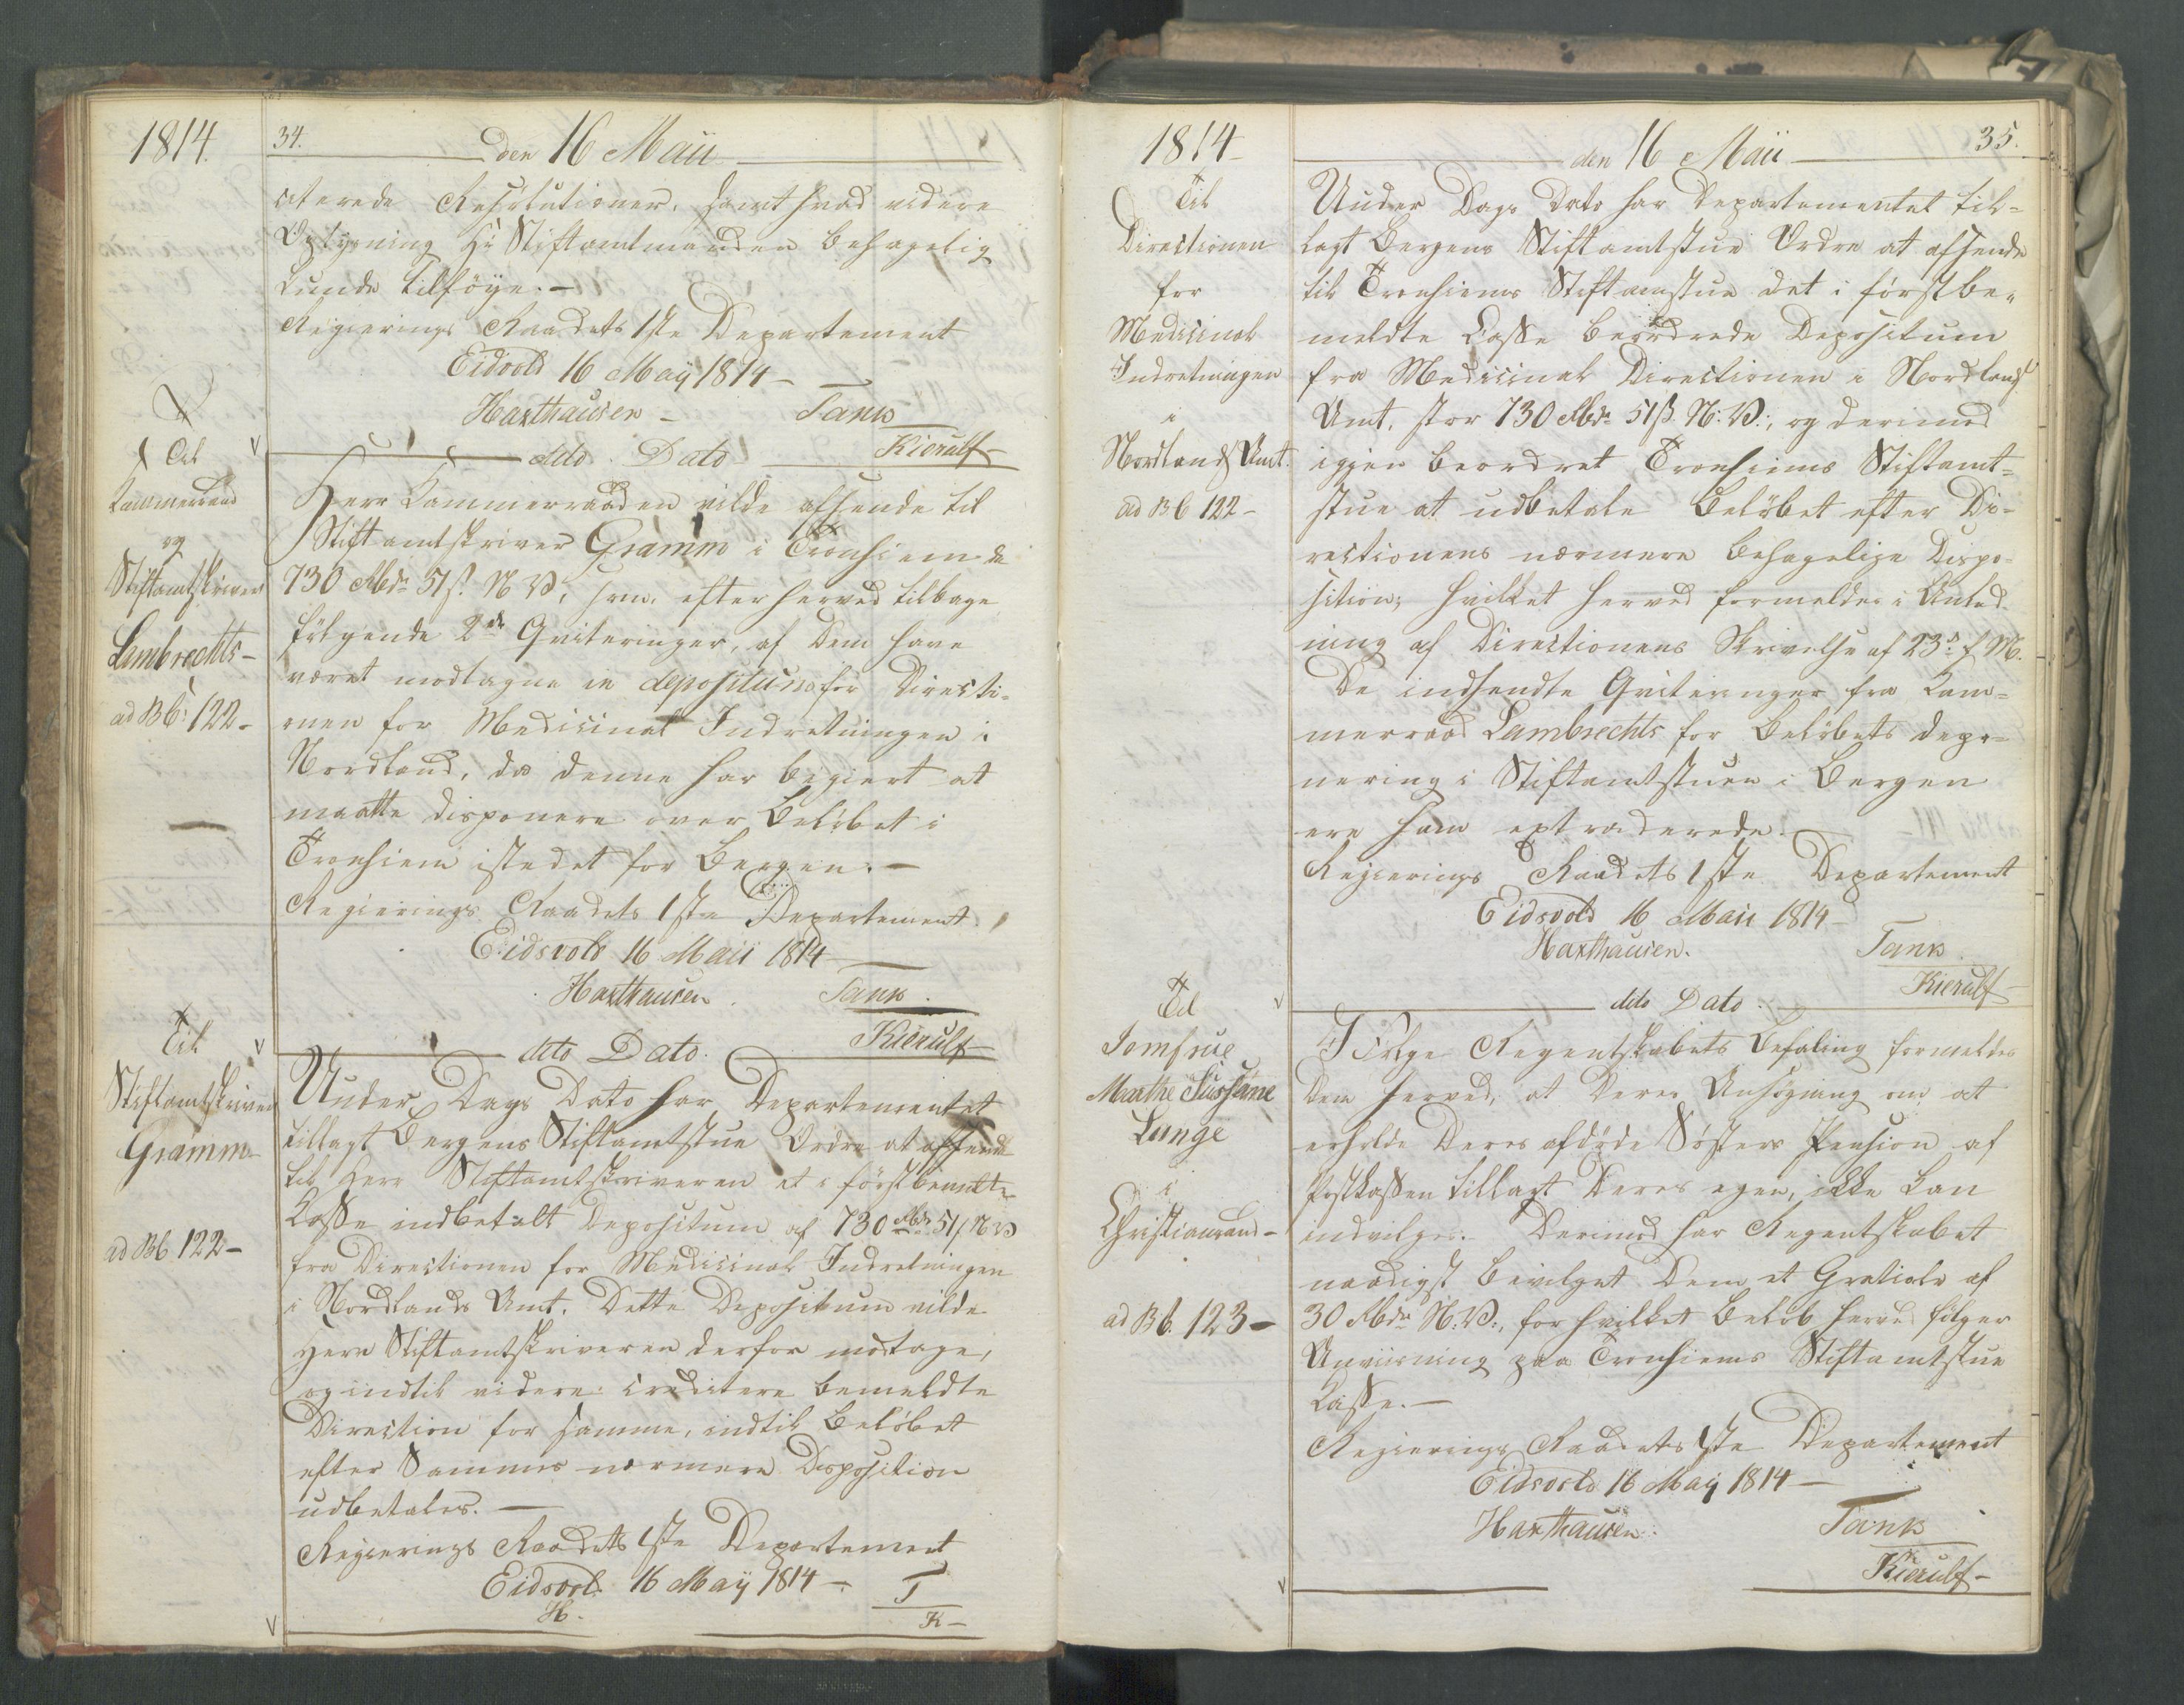 1814.
34.
den 16 Maii
citerede Resolutioner, samt hvad videre
Oplysning Hr Stiftamtmanden behagelig
kunde tilföye. -
Regierings Raadets 1ste Departement
Eidsvold 16 May 1814 -
Haxthausen - Tank
Kierulf
Til
Kammerraad
og
Stiftamtskriver
Lambrechts -
ad B6: 122 -
dito Dato
Herr Kammerraaden vilde afsende til
Stiftamtskriver Gramm i Tronhiem de
730 Rbdr 51 s. N. V., som, efter herved tilbage
fölgende 2de Qviteringer, af Dem have
været modtagne in depositum for Directi-
onen for Medicinal Indretningen i
Nordland, da denne har begiert at
maatte disponere over Belöbet i
Tronhiem istedet for Bergen. -
Regierings Raadets 1ste Departement
Eidsvold 16 Maii 1814
Haxthausen. Tank.
Kierulf
Til
Stiftamtskriver
Gramm -
ad B6 122 -
dito Dato.
Under Dags Dato har Departementet
tillagt Bergens Stiftamtstue Ordre at afsende
til Herr Stiftamtskriveren et i förstbemeldte
Casse indbetalt Depositum af 730 Rbdr 51 s N V
fra Directionen for Medicinal Indretningen
i Nordlands Amt. Dette Depositum vilde
Herr Stiftamtskriveren derfor modtage,
og indtil videre creditere bemeldte
Direction for samme, indtil Belöbet
efter Sammes nærmere Disposition
udbetales. -
Regierings Raadets 1ste Departement
Eidsvold 16 May 1814 -
H. T
K -
1814
35.
den 16 Maii
Til
Directionen
for
Medicinal
Indretningen
i
Nordlands Amt.
ad B6 122 -
Under Dags Dato har Departementet til-
lagt Bergens Stiftamtstue Ordre at afsende
til Tronhiems Stiftamtstue det i förstbe-
meldte Casse beordrede Depositum
fra Medicinal Directionen i Nordlands
Amt, stor 730 Rbdr 51 s N: V:, og derimod
igjen beordret Tronhiems Stiftamt-
stue at udbetale Belöbet efter Di-
rectionens nærmere behagelige Dispo-
sition; hvilket herved formeldes i Anled-
ning af Directionens Skrivelse af 23de f. M.
De indsendte Qviteringer fra Kam-
merraad Lambrechts for Belöbets depo-
nering i Stiftamtstuen i Bergen
ere ham extraderede.
Regierings Raadets 1ste Departement
Eidsvold 16 Maii 1814 -
Haxthausen. Tank
Kierulf
Til
Jomfrue
Marthe Sussane
Lange
i
Christiansand -
ad B6. 123 -
dito Dato.
I Fölge Regentskabets Befaling formeldes
Dem herved, at Deres Ansögning om at
erholde Deres afdöde Sösters Pension af
Postkassen tillagt Deres egen, ikke kan
indvilges. Derimod har Regentskabet
naadigst bevilget Dem et Gratiale af
30 Rbdr N: V:, for hvilket Belöb herved fölger
Anviisning paa Tronhiems Stiftamtstue
Casse. -
Regierings Raadets 1ste Departement
Eidsvold 16 May 1814 -
Haxthausen. Tank
Kierulf -